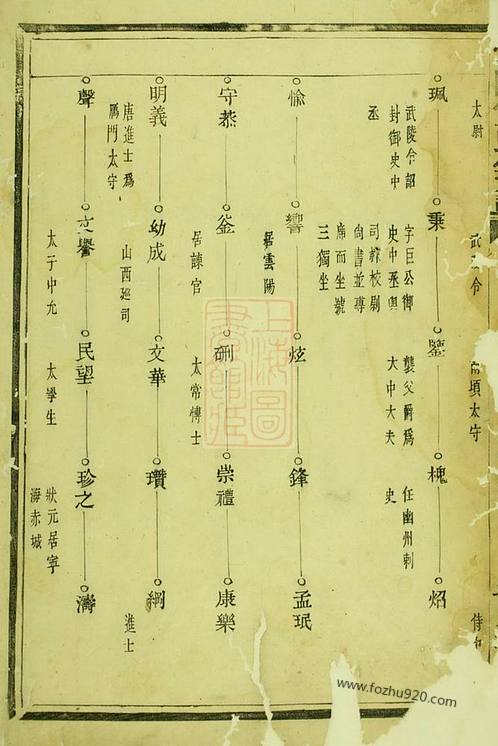 太尉
武 令
頃太守
侍
珮
武陵令詔
封御史中
丞
秉
字巨公御
史中丞與
司隸校尉
尚書並專
席而坐號
三獨坐
鑒
襲父爵爲
大中大夫
槐
任幽州刺
史
炤
愉
響
居雲陽
炫
鋒
孟珉
守恭
崟
居諫官
硎
太常博士
崇禮
康樂
明義
唐進士爲
鴈門太守
幼成
山西廵司
文華
瓚
綱
進士
聲
文譽
太子中允
民望
太學生
珍之
狀元居寧
海赤城
濤
上海圖
書館藏
www.fozhu920.com